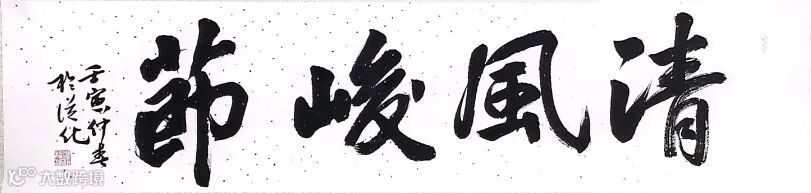 清風峻節
壬寅仲春
於從化
大数跨境